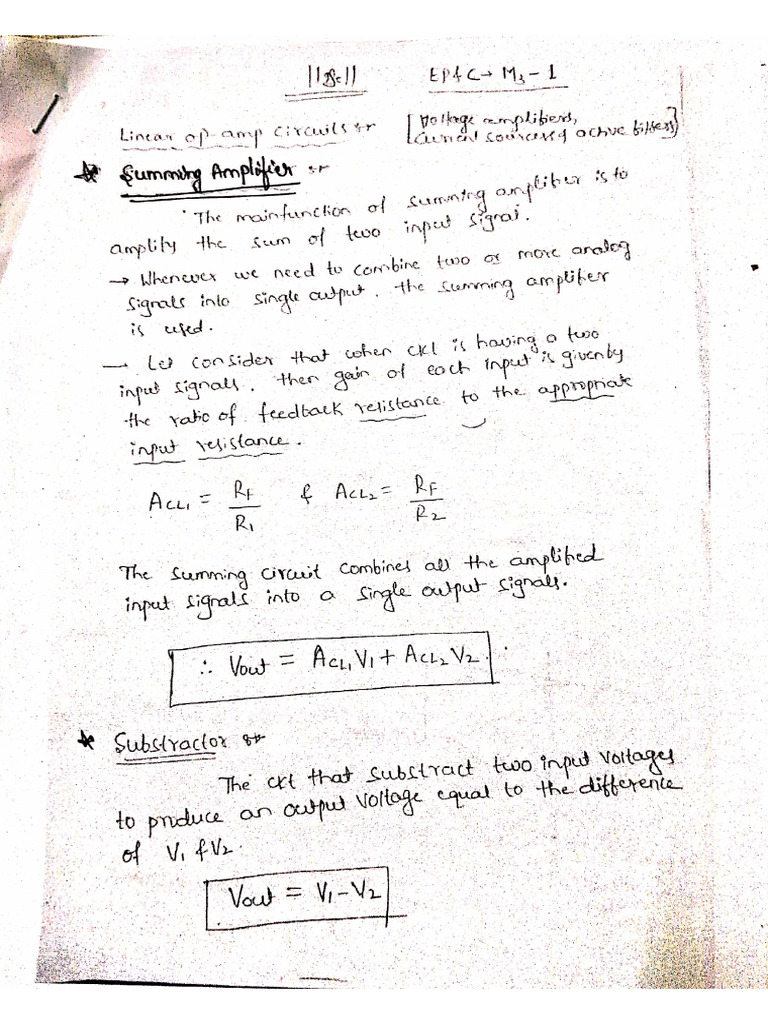 EP&C → M3 - 1
Linear op-amp circuits :- [Voltage amplifiers,
current sources & active filters]
* Summing Amplifier :-
The mainfunction of summing amplifier is to
amplify the sum of two input signal.
→ Whenever we need to combine two or more analog
signals into single output. the summing amplifier
is used.
— Let consider that when ckt is having a two
input signals. then gain of each input is given by
the ratio of feedback resistance to the appropriate
input resistance.
ACL1 = RF/R1 & ACL2 = RF/R2
The summing circuit combines all the amplified
input signals into a single output signals.
∴ Vout = ACL1 V1 + ACL2 V2.
* Substractor :-
The ckt that substract two input voltages
to produce an output voltage equal to the difference
of V1 & V2.
Vout = V1 - V2